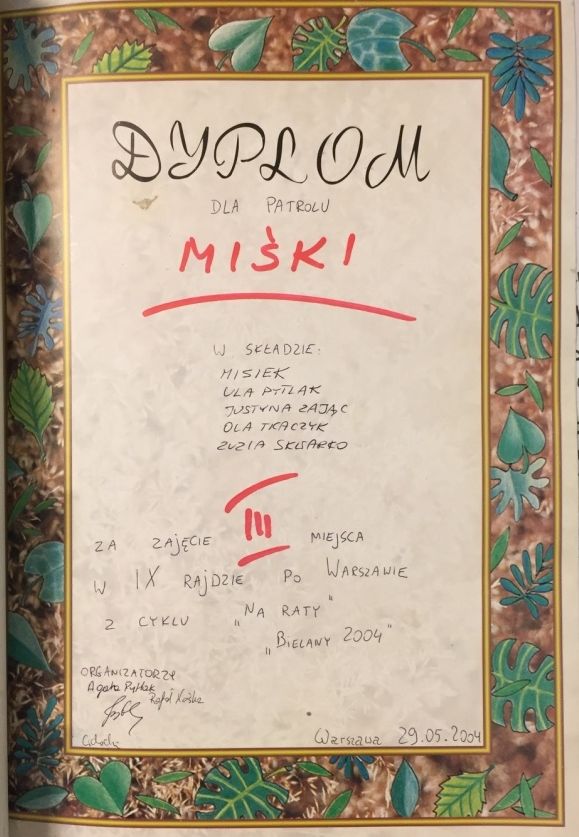 DYPLOM
DLA PATROLU
MIŚKI
W SKŁADZIE:
MISIEK
ULA PYTLAK
JUSTYNA ZAJĄC
OLA TKACZYK
ZUZIA
ZA ZAJĘCIE III MIEJSCA
W IX RAJDZIE PO WARSZAWIE
Z CYKLU „NA RATY"
„BIELANY 2004"
ORGANIZATORZY
Agata Pytlak
Rafał
Warszawa 29.05.2004